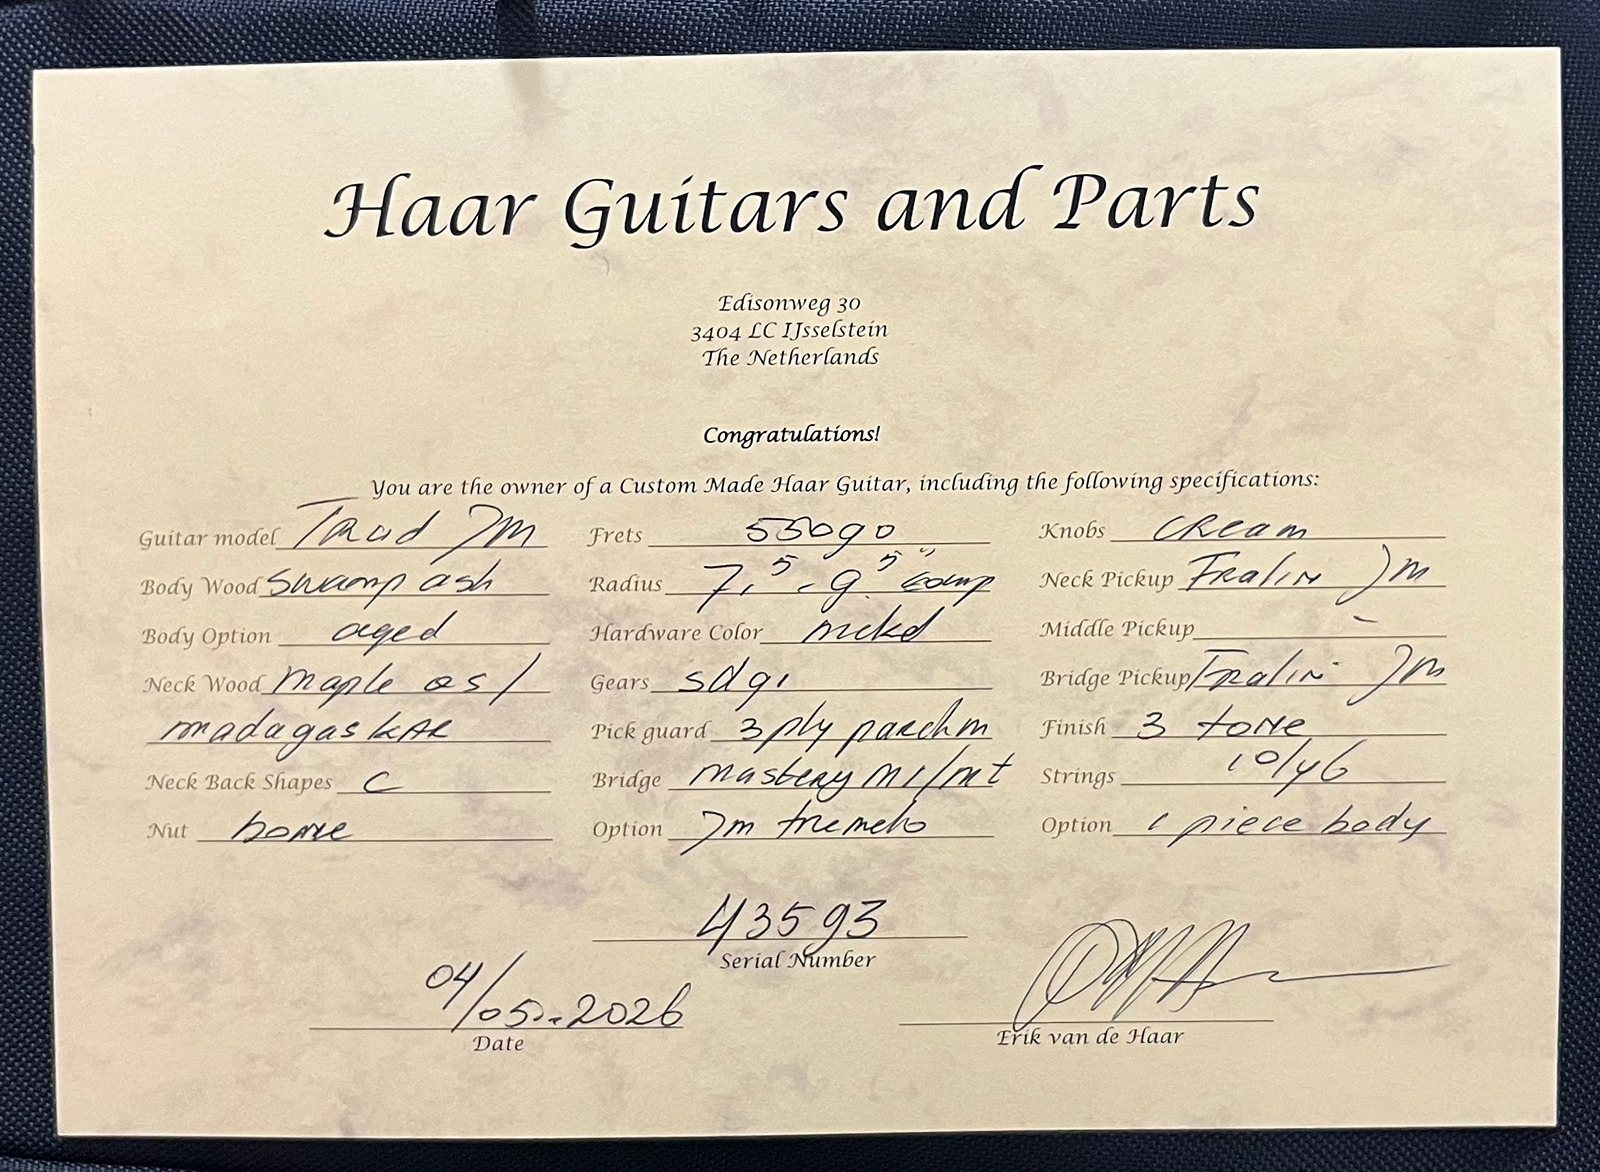 Haar Guitars and Parts
Edisonweg 30
3404 LC IJsselstein
The Netherlands
Congratulations!
You are the owner of a Custom Made Haar Guitar, including the following specifications:
Guitar model Trad JM
Body Wood swamp ash
Body Option aged
Neck Wood maple qs /
madagaskar
Neck Back Shapes C
Nut bone
Frets 55090
Radius 7,5 - 9.5" comp
Hardware Color nickel
Gears sd91
Pick guard 3 ply parchm
Bridge mastery M1/mt
Option JM tremelo
Knobs cream
Neck Pickup Fralin JM
Middle Pickup -
Bridge Pickup Fralin JM
Finish 3 tone
Strings 10/46
Option 1 piece body
43593
Serial Number
04/05-2026
Date
Erik van de Haar